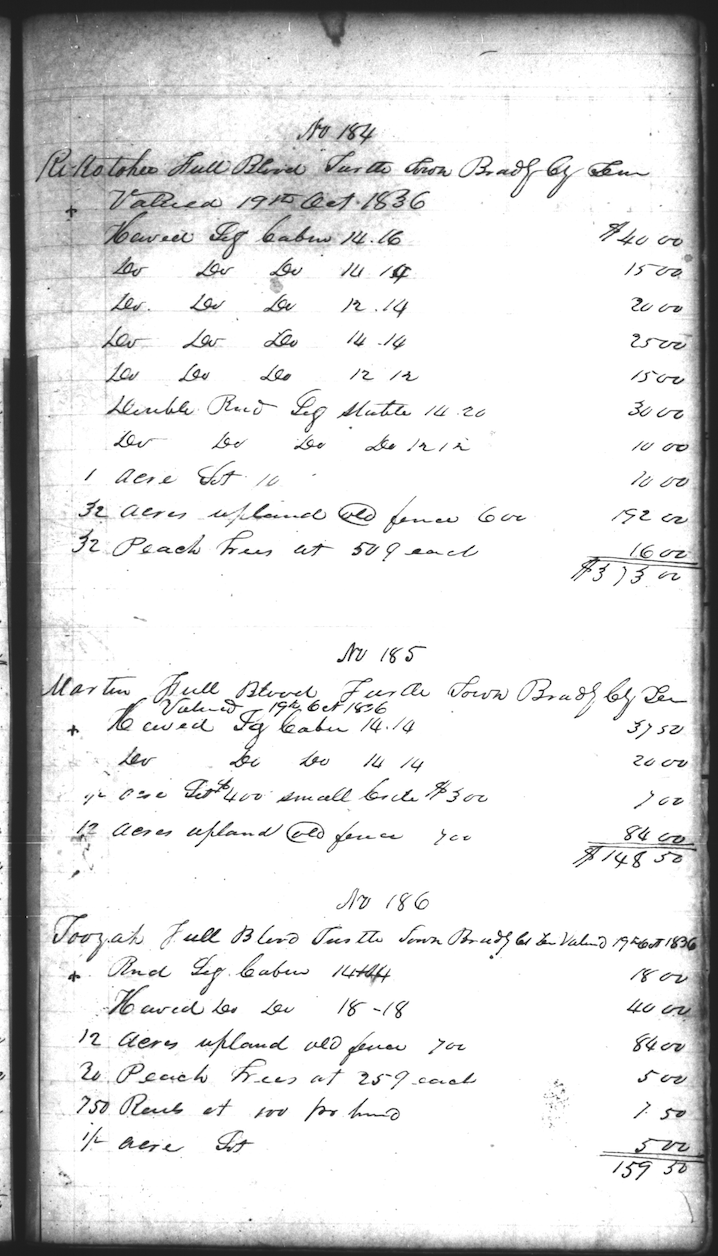 No 184
Ri Kotohee Full Blood Turtle Town Bradf Cy Ten
+ Vallued 19th Oct 1836
Hewed Log Cabin 14.16 $40 00
Do Do Do 14 14 15 00
Do. Do Do 12.14 20 00
Do Do Do 14.14 25 00
Do Do Do 12 12 15 00
Double Rnd Log Stable 14.20 30 00
Do Do Do Do 12 12 10 00
1 acre Lot 10 10 00
32 acres upland old fence 6 00 192 00
32 Peach Trees at 50 ¢ each 16 00
$373 00
No 185
Martin Full Blood Turtle Town Bradf Cy Ten
Valued 19th Oct 1836
+ Hewed Log Cabin 14.14 37 50
Do Do Do 14 14 20 00
1/2 acre Lot $4 00 small $3 00 7 00
12 acres upland old fence 7 00 84 00
$148 50
No 186
Toozah Full Blood Turtle Town Bradf Co Ten Valued 19th Oct 1836
+ Rnd Log Cabin 14 14 18 00
Hewed Do Do 18-18 40 00
12 acres upland old fence 7 00 84 00
20 Peach Trees at 25 ¢ each 5 00
750 Rails at 100 pr hund 7.50
1/2 acre Lot 5 00
159 50